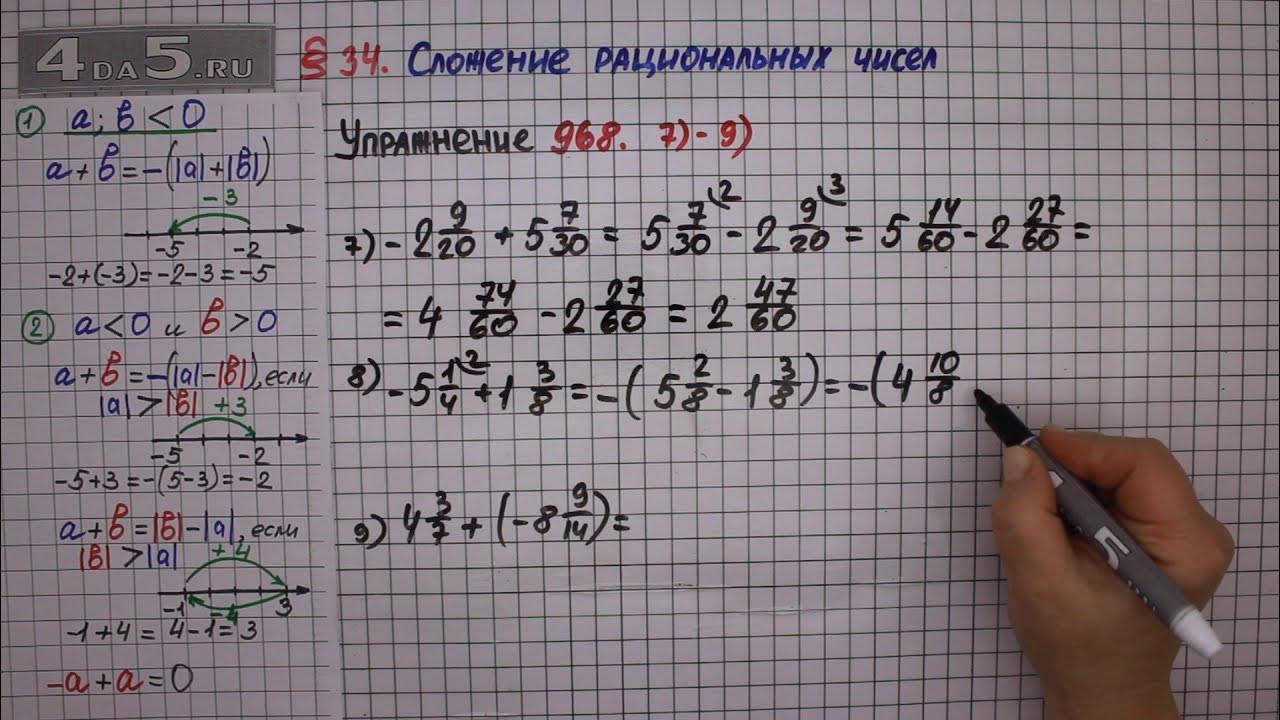 4DA5.RU
§ 34. Сложение рациональных чисел
① a; в < 0
a + в = -(|a| + |в|)
-3
-5 -2
-2+(-3)=-2-3=-5
② a < 0 и в > 0
a + в = -(|a| - |в|), если
|a| > |в| +3
-5 -2
-5+3=-(5-3)=-2
a + в = |в| - |a|, если
|в| > |a| +4
-1 3
-4
-1+4 = 4-1 = 3
-a + a = 0
Упражнение 968. 7) - 9)
7) - 2 9/20 + 5 7/30 = 5 7/30 \2 - 2 9/20 \3 = 5 14/60 - 2 27/60 =
= 4 74/60 - 2 27/60 = 2 47/60
8) - 5 1/4 \2 + 1 3/8 = - ( 5 2/8 - 1 3/8 ) = - ( 4 10/8
9) 4 3/7 + ( - 8 9/14 ) =
5